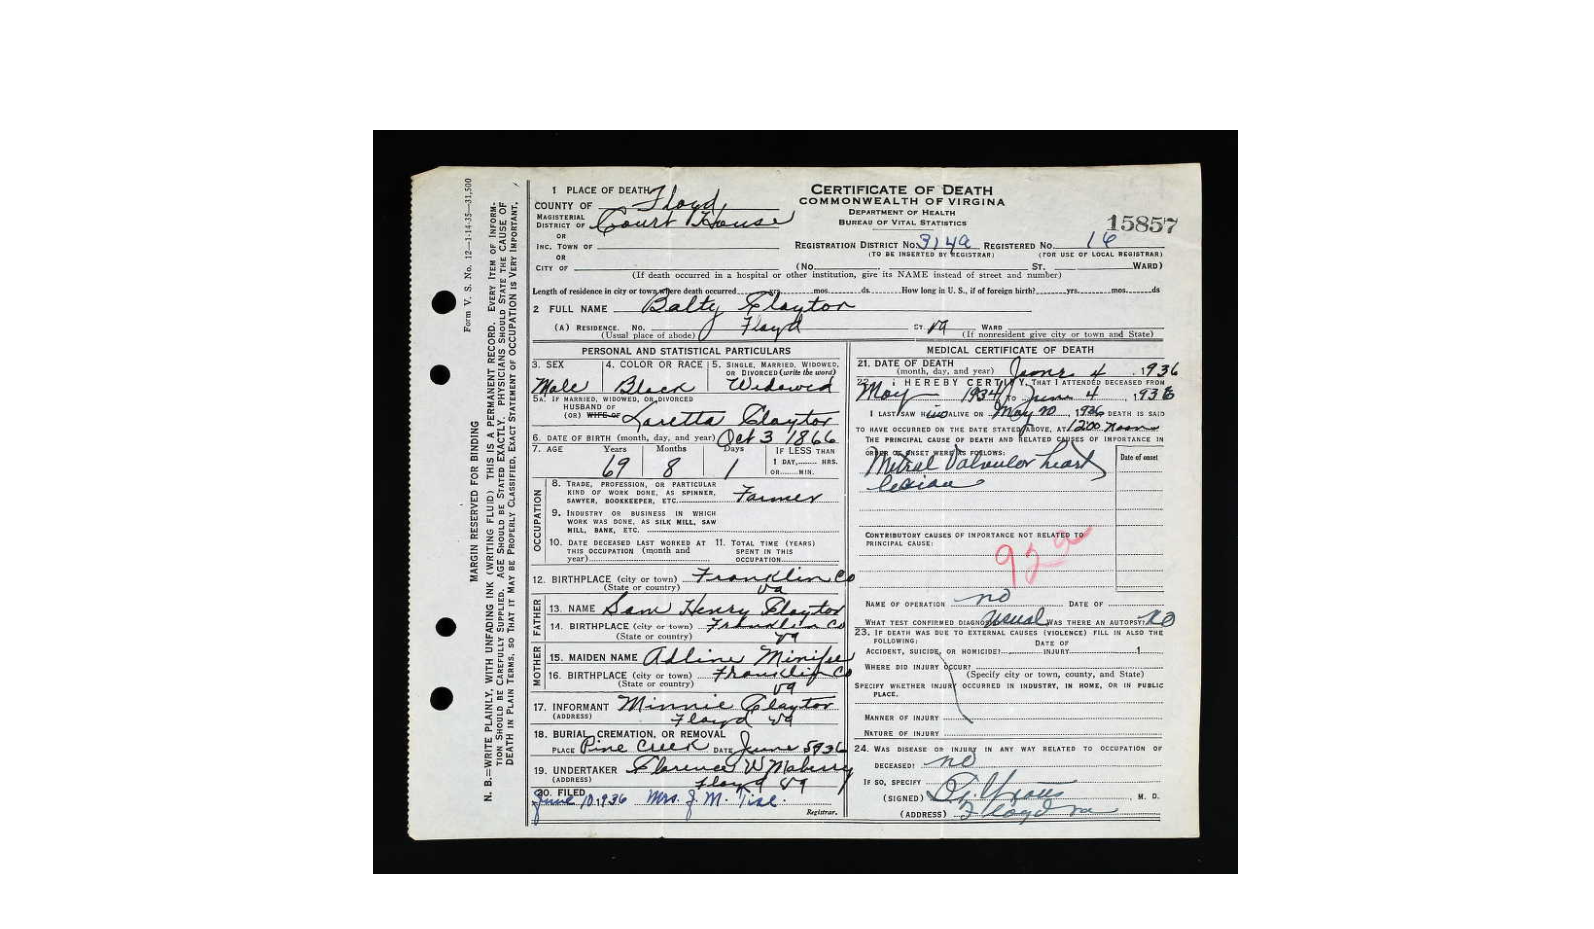 Form V. S. No. 12—1-14-35—31,500
MARGIN RESERVED FOR BINDING
N. B.—WRITE PLAINLY, WITH UNFADING INK (WRITING FLUID) THIS IS A PERMANENT RECORD. EVERY ITEM OF INFORM-
TION SHOULD BE CAREFULLY SUPPLIED. AGE SHOULD BE STATED EXACTLY. PHYSICIANS SHOULD STATE THE CAUSE OF
DEATH IN PLAIN TERMS, SO THAT IT MAY BE PROPERLY CLASSIFIED, EXACT STATEMENT OF OCCUPATION IS VERY IMPORTANT.
1 PLACE OF DEATH
COUNTY OF Floyd
MAGISTERIAL
DISTRICT OF Court House
OR
INC. TOWN OF
OR
CITY OF
CERTIFICATE OF DEATH
COMMONWEALTH OF VIRGINIA
DEPARTMENT OF HEALTH
BUREAU OF VITAL STATISTICS
15857
REGISTRATION DISTRICT NO. 314a REGISTERED NO. 16
(TO BE INSERTED BY REGISTRAR) (FOR USE OF LOCAL REGISTRAR)
(No. ST. WARD)
(If death occurred in a hospital or other institution, give its NAME instead of street and number)
Length of residence in city or town where death occurred yrs. mos. ds How long in U. S., if of foreign birth? yrs. mos. ds
2 FULL NAME Balty Claytor
(A) RESIDENCE. No. Floyd ST. Va WARD
(Usual place of abode) (If nonresident give city or town and State)
PERSONAL AND STATISTICAL PARTICULARS
3. SEX
Male
4. COLOR OR RACE
Black
5. SINGLE, MARRIED, WIDOWED,
OR DIVORCED (write the word)
Widowed
5A. IF MARRIED, WIDOWED, OR DIVORCED
HUSBAND OF
(OR) WIFE OF Loretta Claytor
6. DATE OF BIRTH (month, day, and year) Oct 3 1866
7. AGE Years Months Days IF LESS THAN
69 8 1 1 DAY, HRS.
OR MIN.
OCCUPATION
8. TRADE, PROFESSION, OR PARTICULAR
KIND OF WORK DONE, AS SPINNER,
SAWYER, BOOKKEEPER, ETC. Farmer
9. INDUSTRY OR BUSINESS IN WHICH
WORK WAS DONE, AS SILK MILL, SAW
MILL, BANK, ETC.
10. DATE DECEASED LAST WORKED AT
THIS OCCUPATION (month and
year)
11. TOTAL TIME (YEARS)
SPENT IN THIS
OCCUPATION
12. BIRTHPLACE (city or town) Franklin Co
(State or country) Va
FATHER
13. NAME Sam Henry Claytor
14. BIRTHPLACE (city or town) Franklin Co
(State or country) Va
MOTHER
15. MAIDEN NAME Adline
16. BIRTHPLACE (city or town) Franklin Co
(State or country) Va
17. INFORMANT Minnie Claytor
(ADDRESS) Floyd Va
18. BURIAL, CREMATION, OR REMOVAL
PLACE Pine Creek DATE June 5 1936
19. UNDERTAKER Clarence W Maberry
(ADDRESS) Floyd Va
20. FILED
June 10, 1936 Mrs. J. M. Tise.
Registrar.
MEDICAL CERTIFICATE OF DEATH
21. DATE OF DEATH
(month, day, and year) June 4, 1936
22. I HEREBY CERTIFY, THAT I ATTENDED DECEASED FROM
May 1934 TO June 4, 1936
I LAST SAW H ALIVE ON May 20, 1936 DEATH IS SAID
TO HAVE OCCURRED ON THE DATE STATED ABOVE, AT 12:00 noon
THE PRINCIPAL CAUSE OF DEATH AND RELATED CAUSES OF IMPORTANCE IN
ORDER OF ONSET WERE AS FOLLOWS:
Date of onset
Mitral Valvular heart
CONTRIBUTORY CAUSES OF IMPORTANCE NOT RELATED TO
PRINCIPAL CAUSE:
92a
NAME OF OPERATION no DATE OF
WHAT TEST CONFIRMED DIAGNOSIS? usual WAS THERE AN AUTOPSY? no
23. IF DEATH WAS DUE TO EXTERNAL CAUSES (VIOLENCE) FILL IN ALSO THE
FOLLOWING:
ACCIDENT, SUICIDE, OR HOMICIDE? DATE OF INJURY 1
WHERE DID INJURY OCCUR?
(Specify city or town, county, and State)
SPECIFY WHETHER INJURY OCCURRED IN INDUSTRY, IN HOME, OR IN PUBLIC
PLACE.
MANNER OF INJURY
NATURE OF INJURY
24. WAS DISEASE OR INJURY IN ANY WAY RELATED TO OCCUPATION OF
DECEASED? no
IF SO, SPECIFY
(SIGNED) M. D.
(ADDRESS) Floyd Va